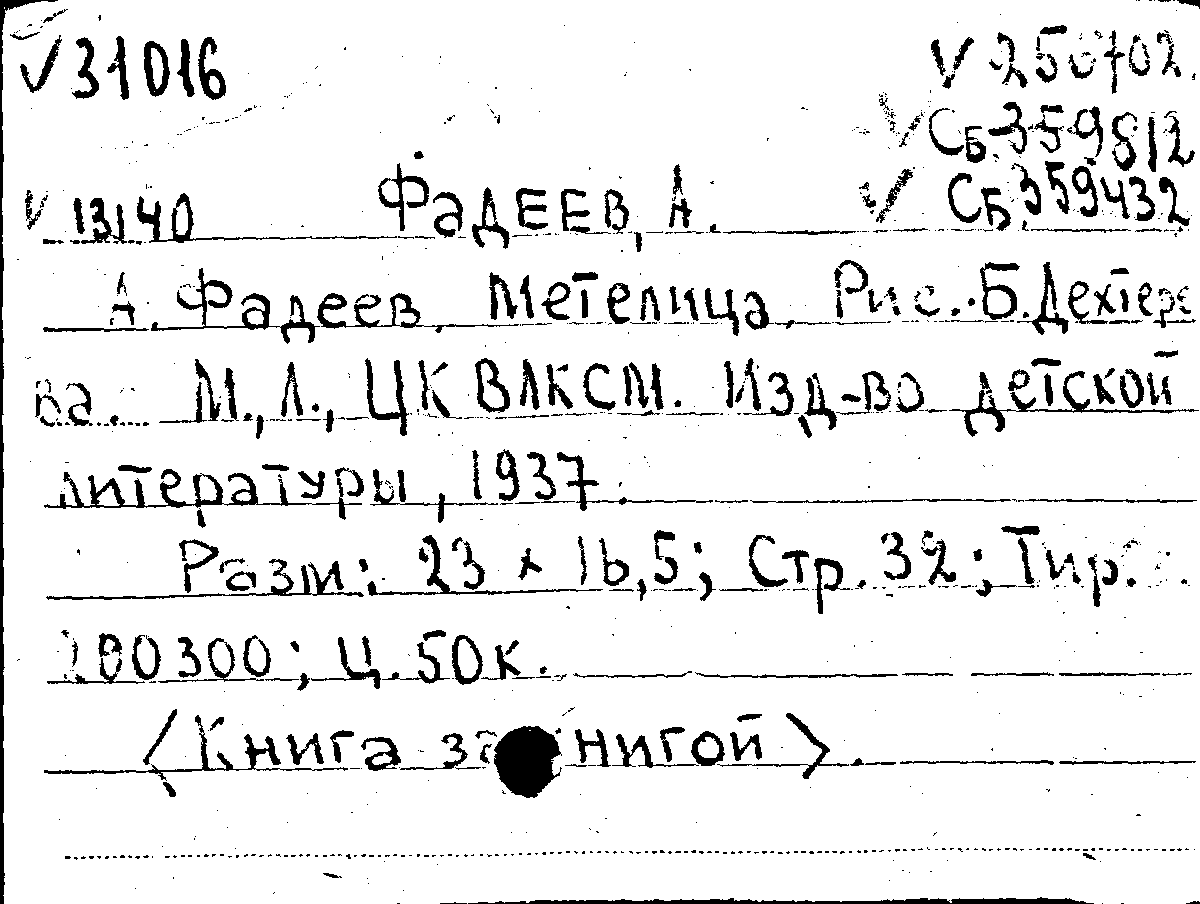 √31016 √ 250702.
√ Сб.359812
√ 13140 Фадеев, А. √ Сб.359432
А. Фадеев. Метелица. Рис. Б.Дехтере
ва. М., Л., ЦК ВЛКСМ. Изд-во детской
литературы, 1937.
Разм: 23 × 16,5; Стр. 32; Тир.
200300; Ц. 50к.
〈Книга за нигой〉.